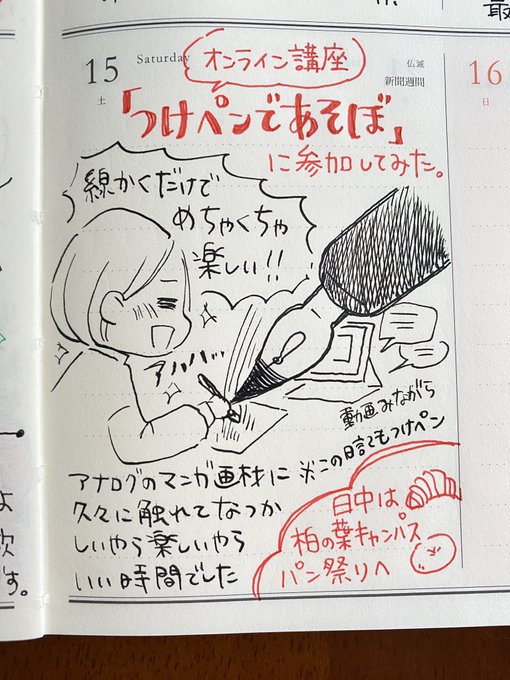 15
土
Saturday
仏滅
新聞週間
オンライン講座
「つけペンであそぼ」
に参加してみた。
線かくだけで
めちゃくちゃ
楽しい!!
アハハハ
動画みながら
※この日記もつけペン
アナログのマンガ画材に
久々に触れてなつか
しいやら楽しいやら
いい時間でした
日中は
柏の葉キャンパス
パン祭りへ
16
日
最
よ
次
す。